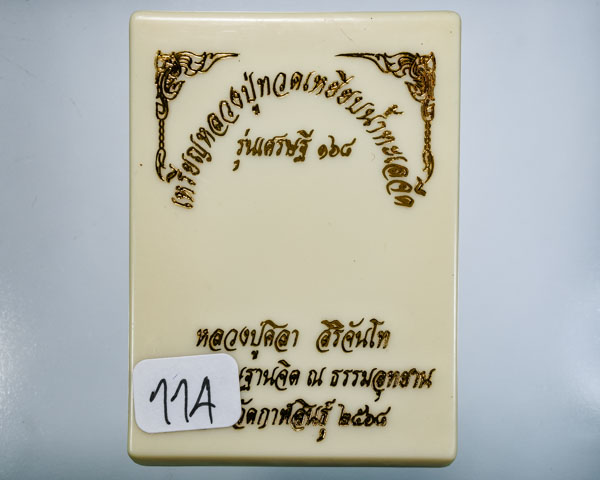 เหรียญหลวงปู่ทวดเหยียบน้ำทะเลจืด
รุ่นเศรษฐี ๑๖๘
หลวงปู่ศิลา สิริจันโท
ณ ธรรมอุทยาน
๒๕๖๘
11A